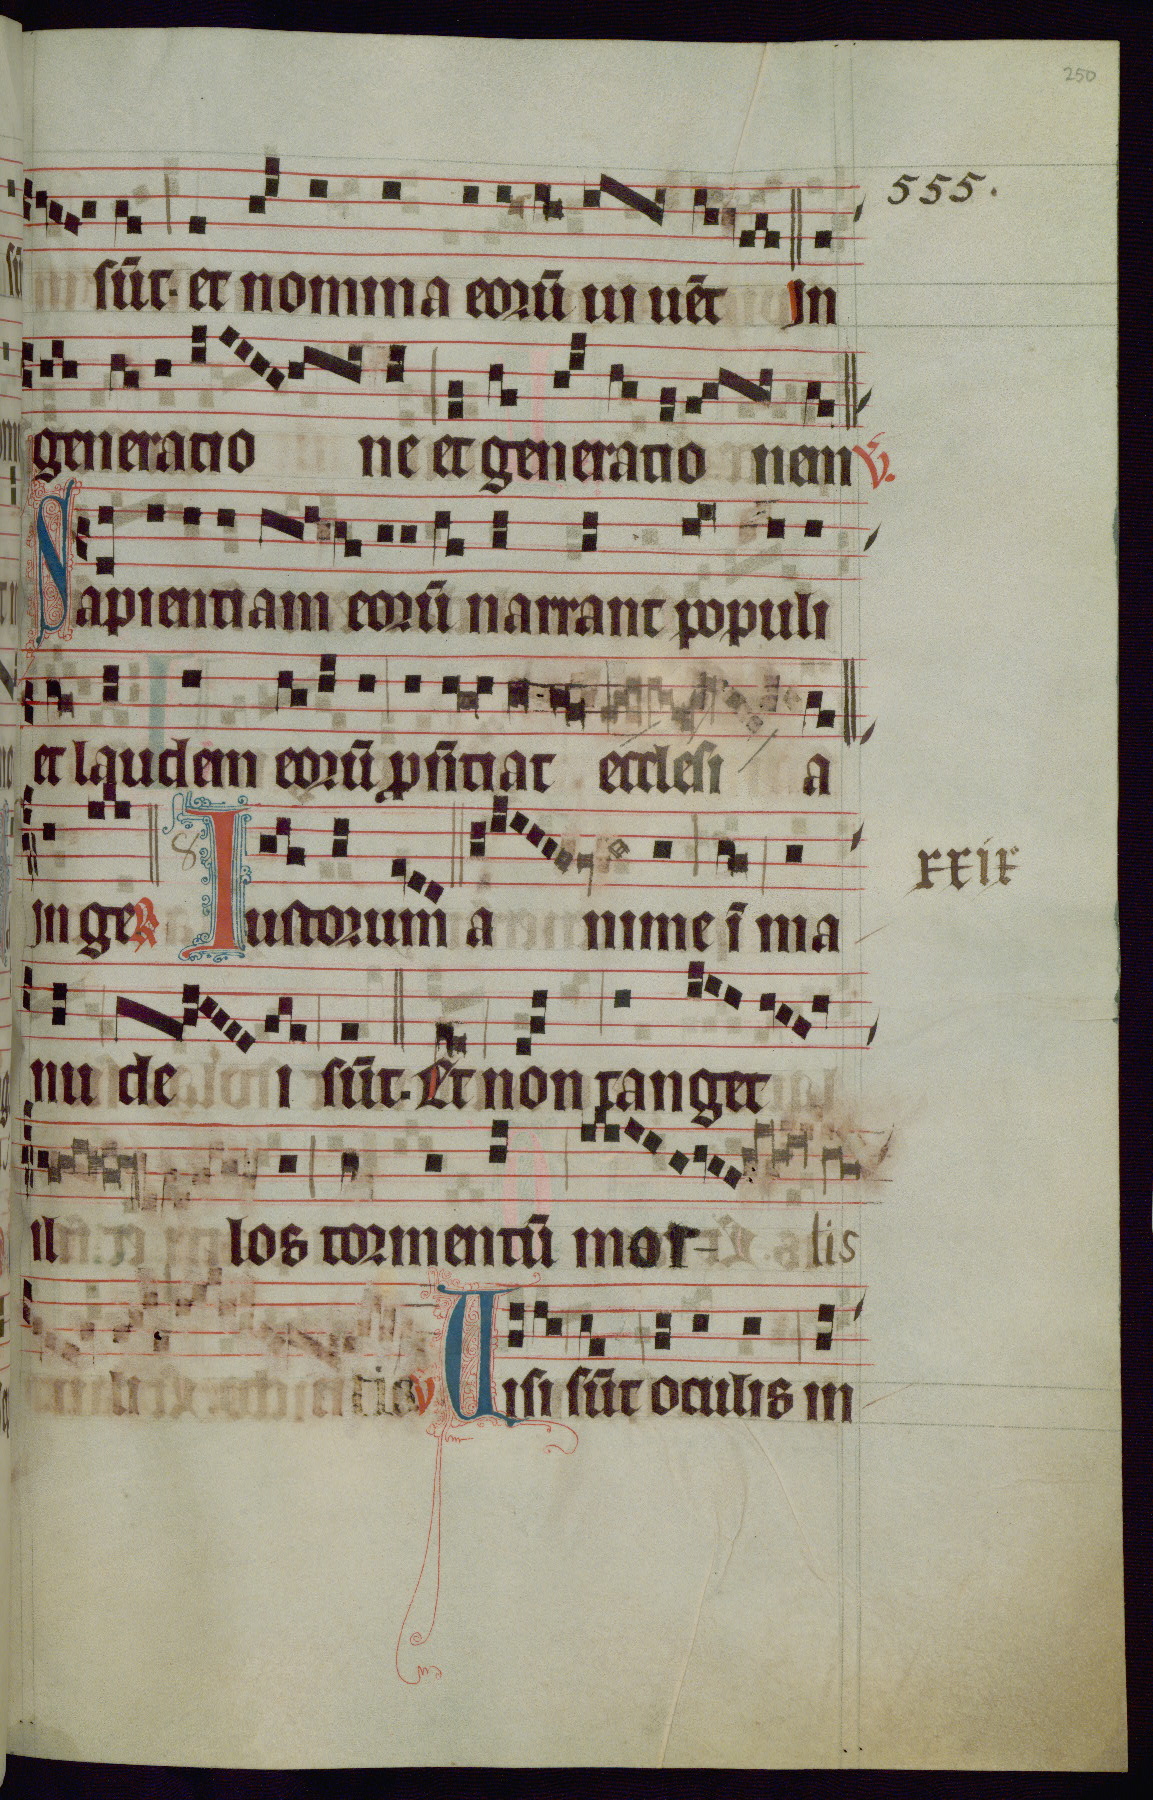 250
555.
sūt. et nomina eorū ui uēt In
generatio ne et generatio nem V̄.
Sapientiam eorū narrant populi
et laudem eorū ꝓnūtiat ecclesi a
In ge ℟ Iustorum a nime ī ma
8
xxix
nu de i sūt. Et non tanget
il los tormentū mor- tis
tis V Uisi sūt oculis in